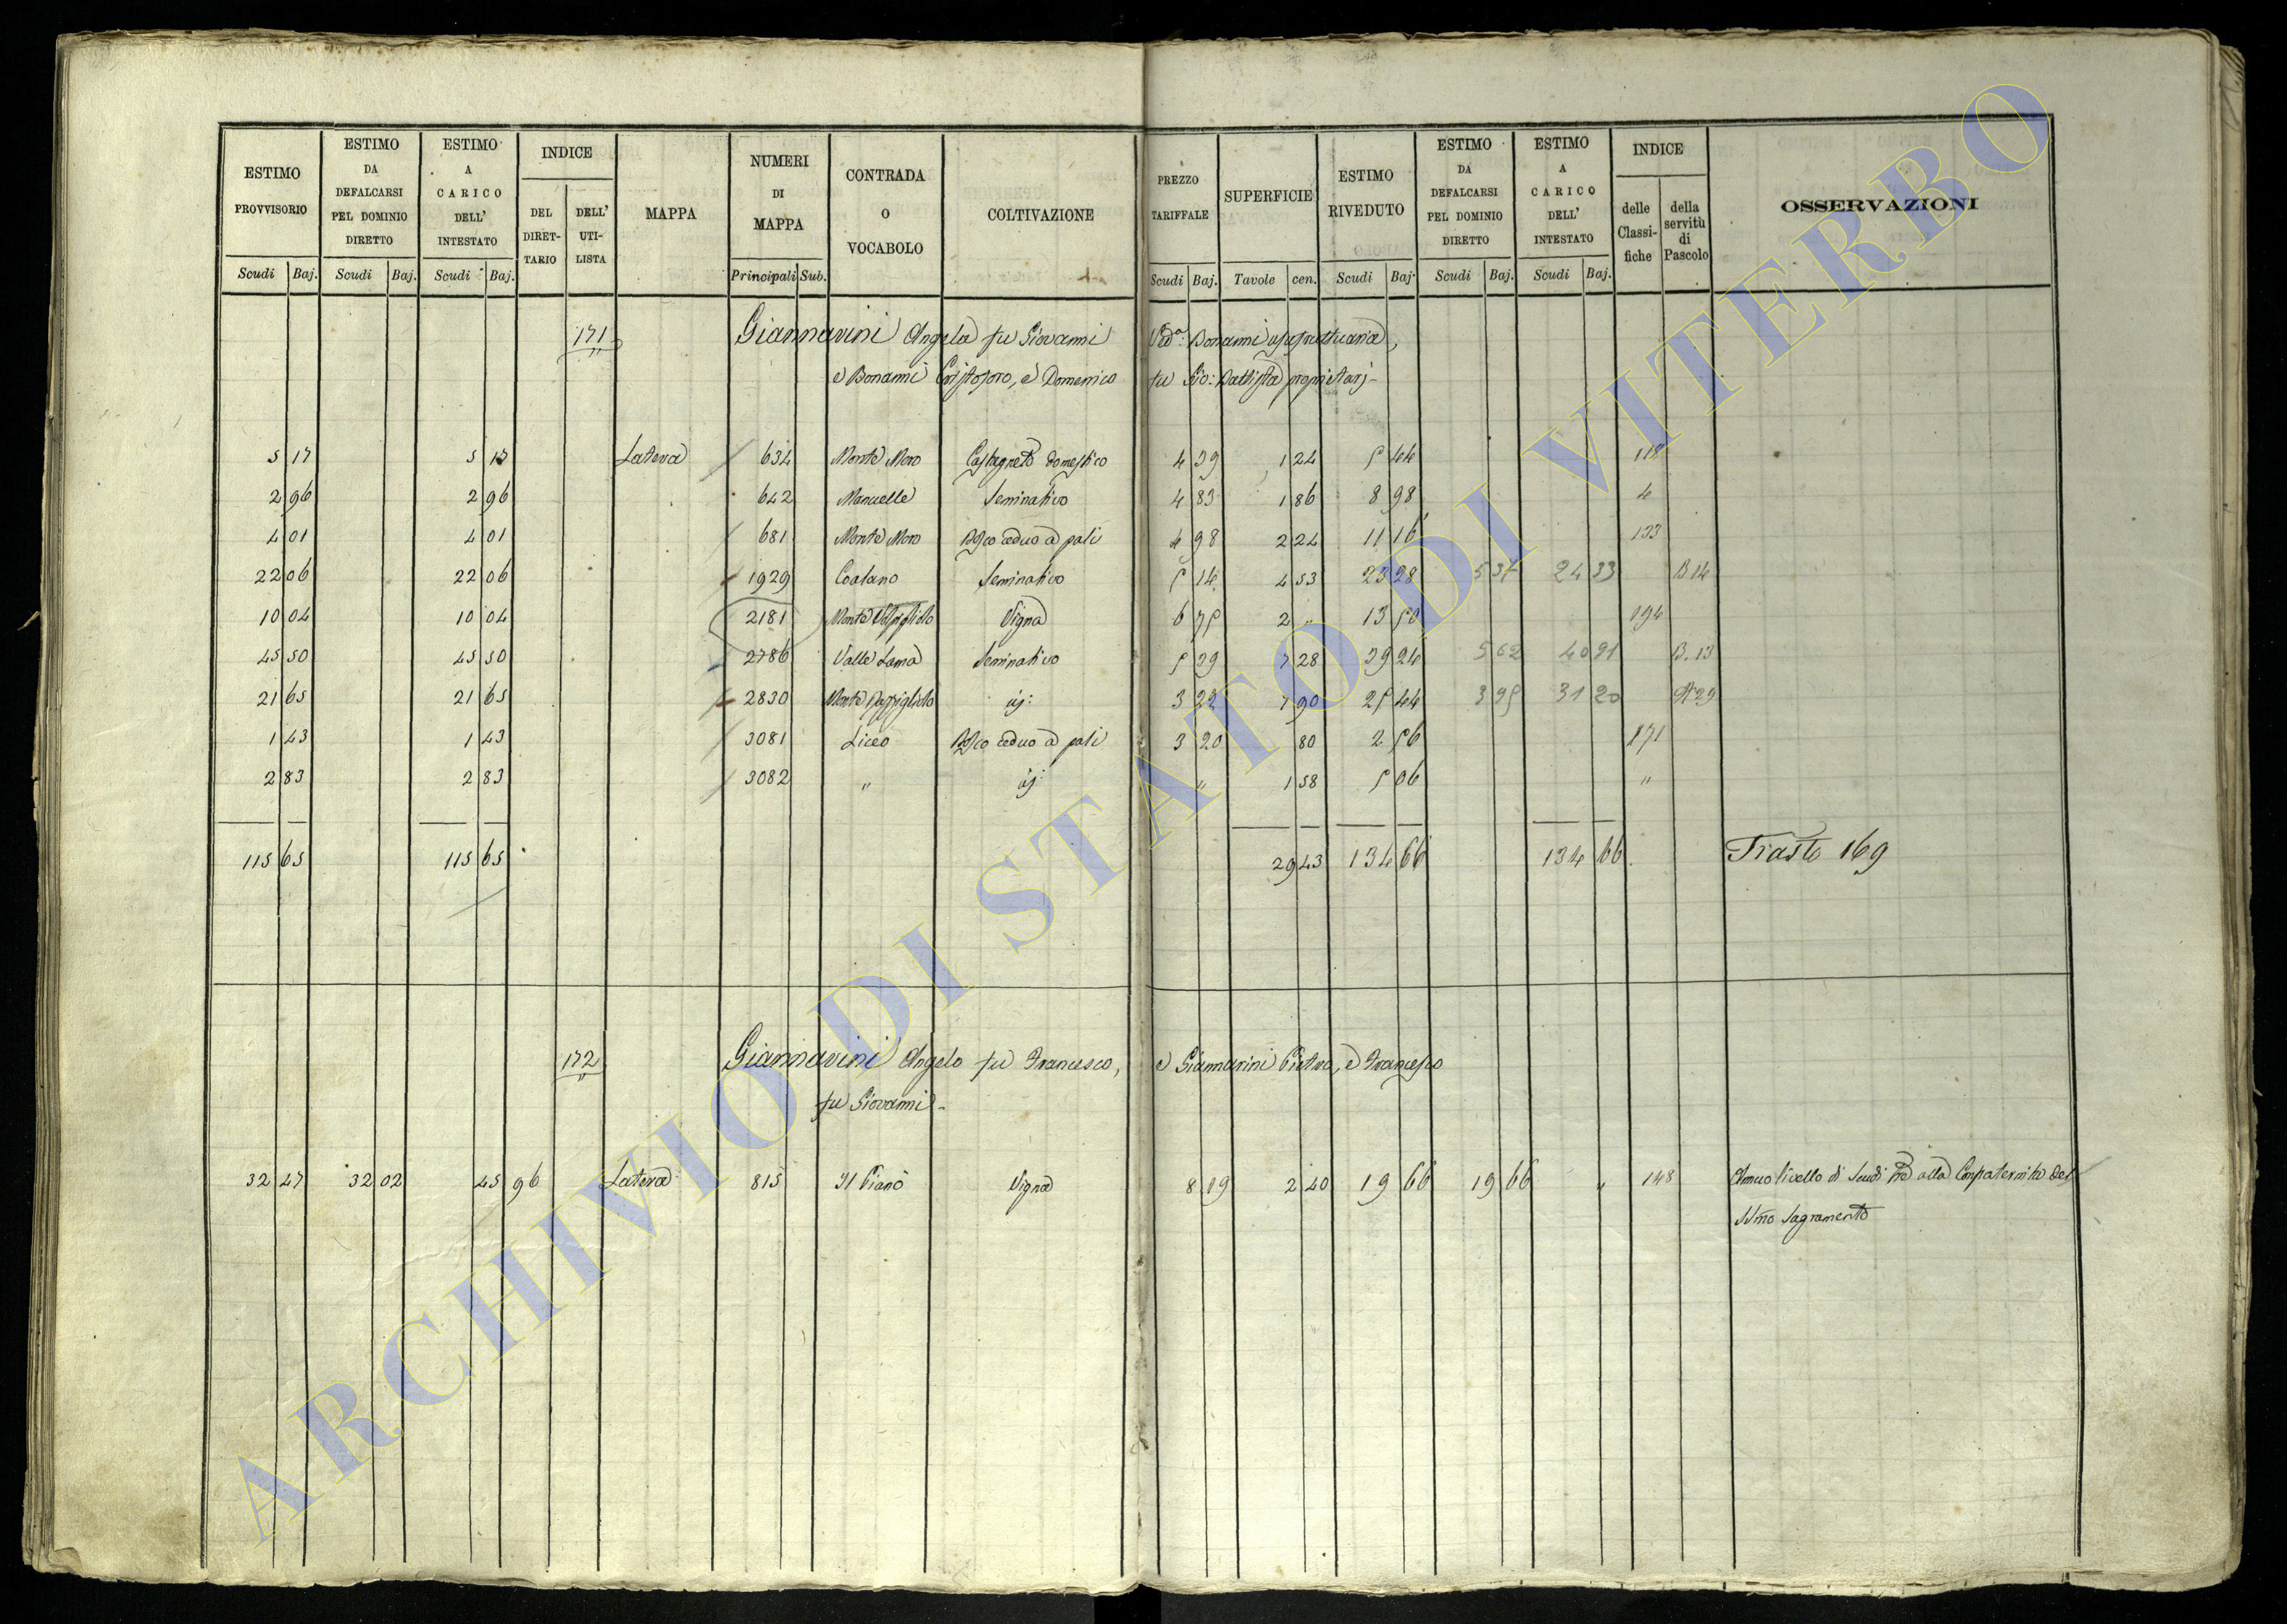 ESTIMO PROVVISORIO Scudi Baj. | ESTIMO DA DEFALCARSI PEL DOMINIO DIRETTO Scudi Baj. | ESTIMO A CARICO DELL' INTESTATO Scudi Baj. | INDICE DEL DIRET-TARIO | DELL' UTI-LISTA | MAPPA | NUMERI DI MAPPA Principali Sub. | CONTRADA O VOCABOLO | COLTIVAZIONE | PREZZO TARIFFALE Scudi Baj. | SUPERFICIE Tavole cen. | ESTIMO RIVEDUTO Scudi Baj. | ESTIMO DA DEFALCARSI PEL DOMINIO DIRETTO Scudi Baj. | ESTIMO A CARICO DELL' INTESTATO Scudi Baj. | INDICE delle Classi-fiche | della servitù di Pascolo | OSSERVAZIONI
171 Giannarini Angela fu Giovanni Ved.a Bonanni usufruttuaria,
e Bonanni Cristoforo, e Domenico fu Gio: Battista proprietarj -
5 17 5 17 Latera 634 Monte Moro Castagneto domestico 4 39 1 24 5 44 118
2 96 2 96 642 Manuelle Seminativo 4 83 1 86 8 98 4
4 01 4 01 681 Monte Moro Bosco ceduo a pali 4 98 2 24 11 16 133
22 06 22 06 1929 Coalano Seminativo 5 14 4 53 23 28 24 33 B 14
10 04 10 04 2181 Monte Vigna 6 75 2 " 13 50 194
45 50 45 50 2786 Valle Lama Seminativo 5 39 7 28 39 24 5 62 40 91 B. 13
21 65 21 65 2830 Monte id: 3 22 7 90 25 44 3 95 31 20 A 29
1 43 1 43 3081 Liceo Bosco ceduo a pali 3 20 80 2 56 171
2 83 2 83 3082 " id: " 1 58 5 06 "
115 65 115 65 29 43 134 66 134 66 Trasto 169
172 Giannarini Angelo fu Francesco, e Giannarini Pietro, e Francesco
fu Giovanni -
32 47 32 02 45 96 Latera 815 Il Piano Vigna 8 19 2 40 19 66 19 66 " 148 Annuo livello di Scudi alla Confraternita del
SSmo Sagramento
ARCHIVIO DI STATO DI VITERBO